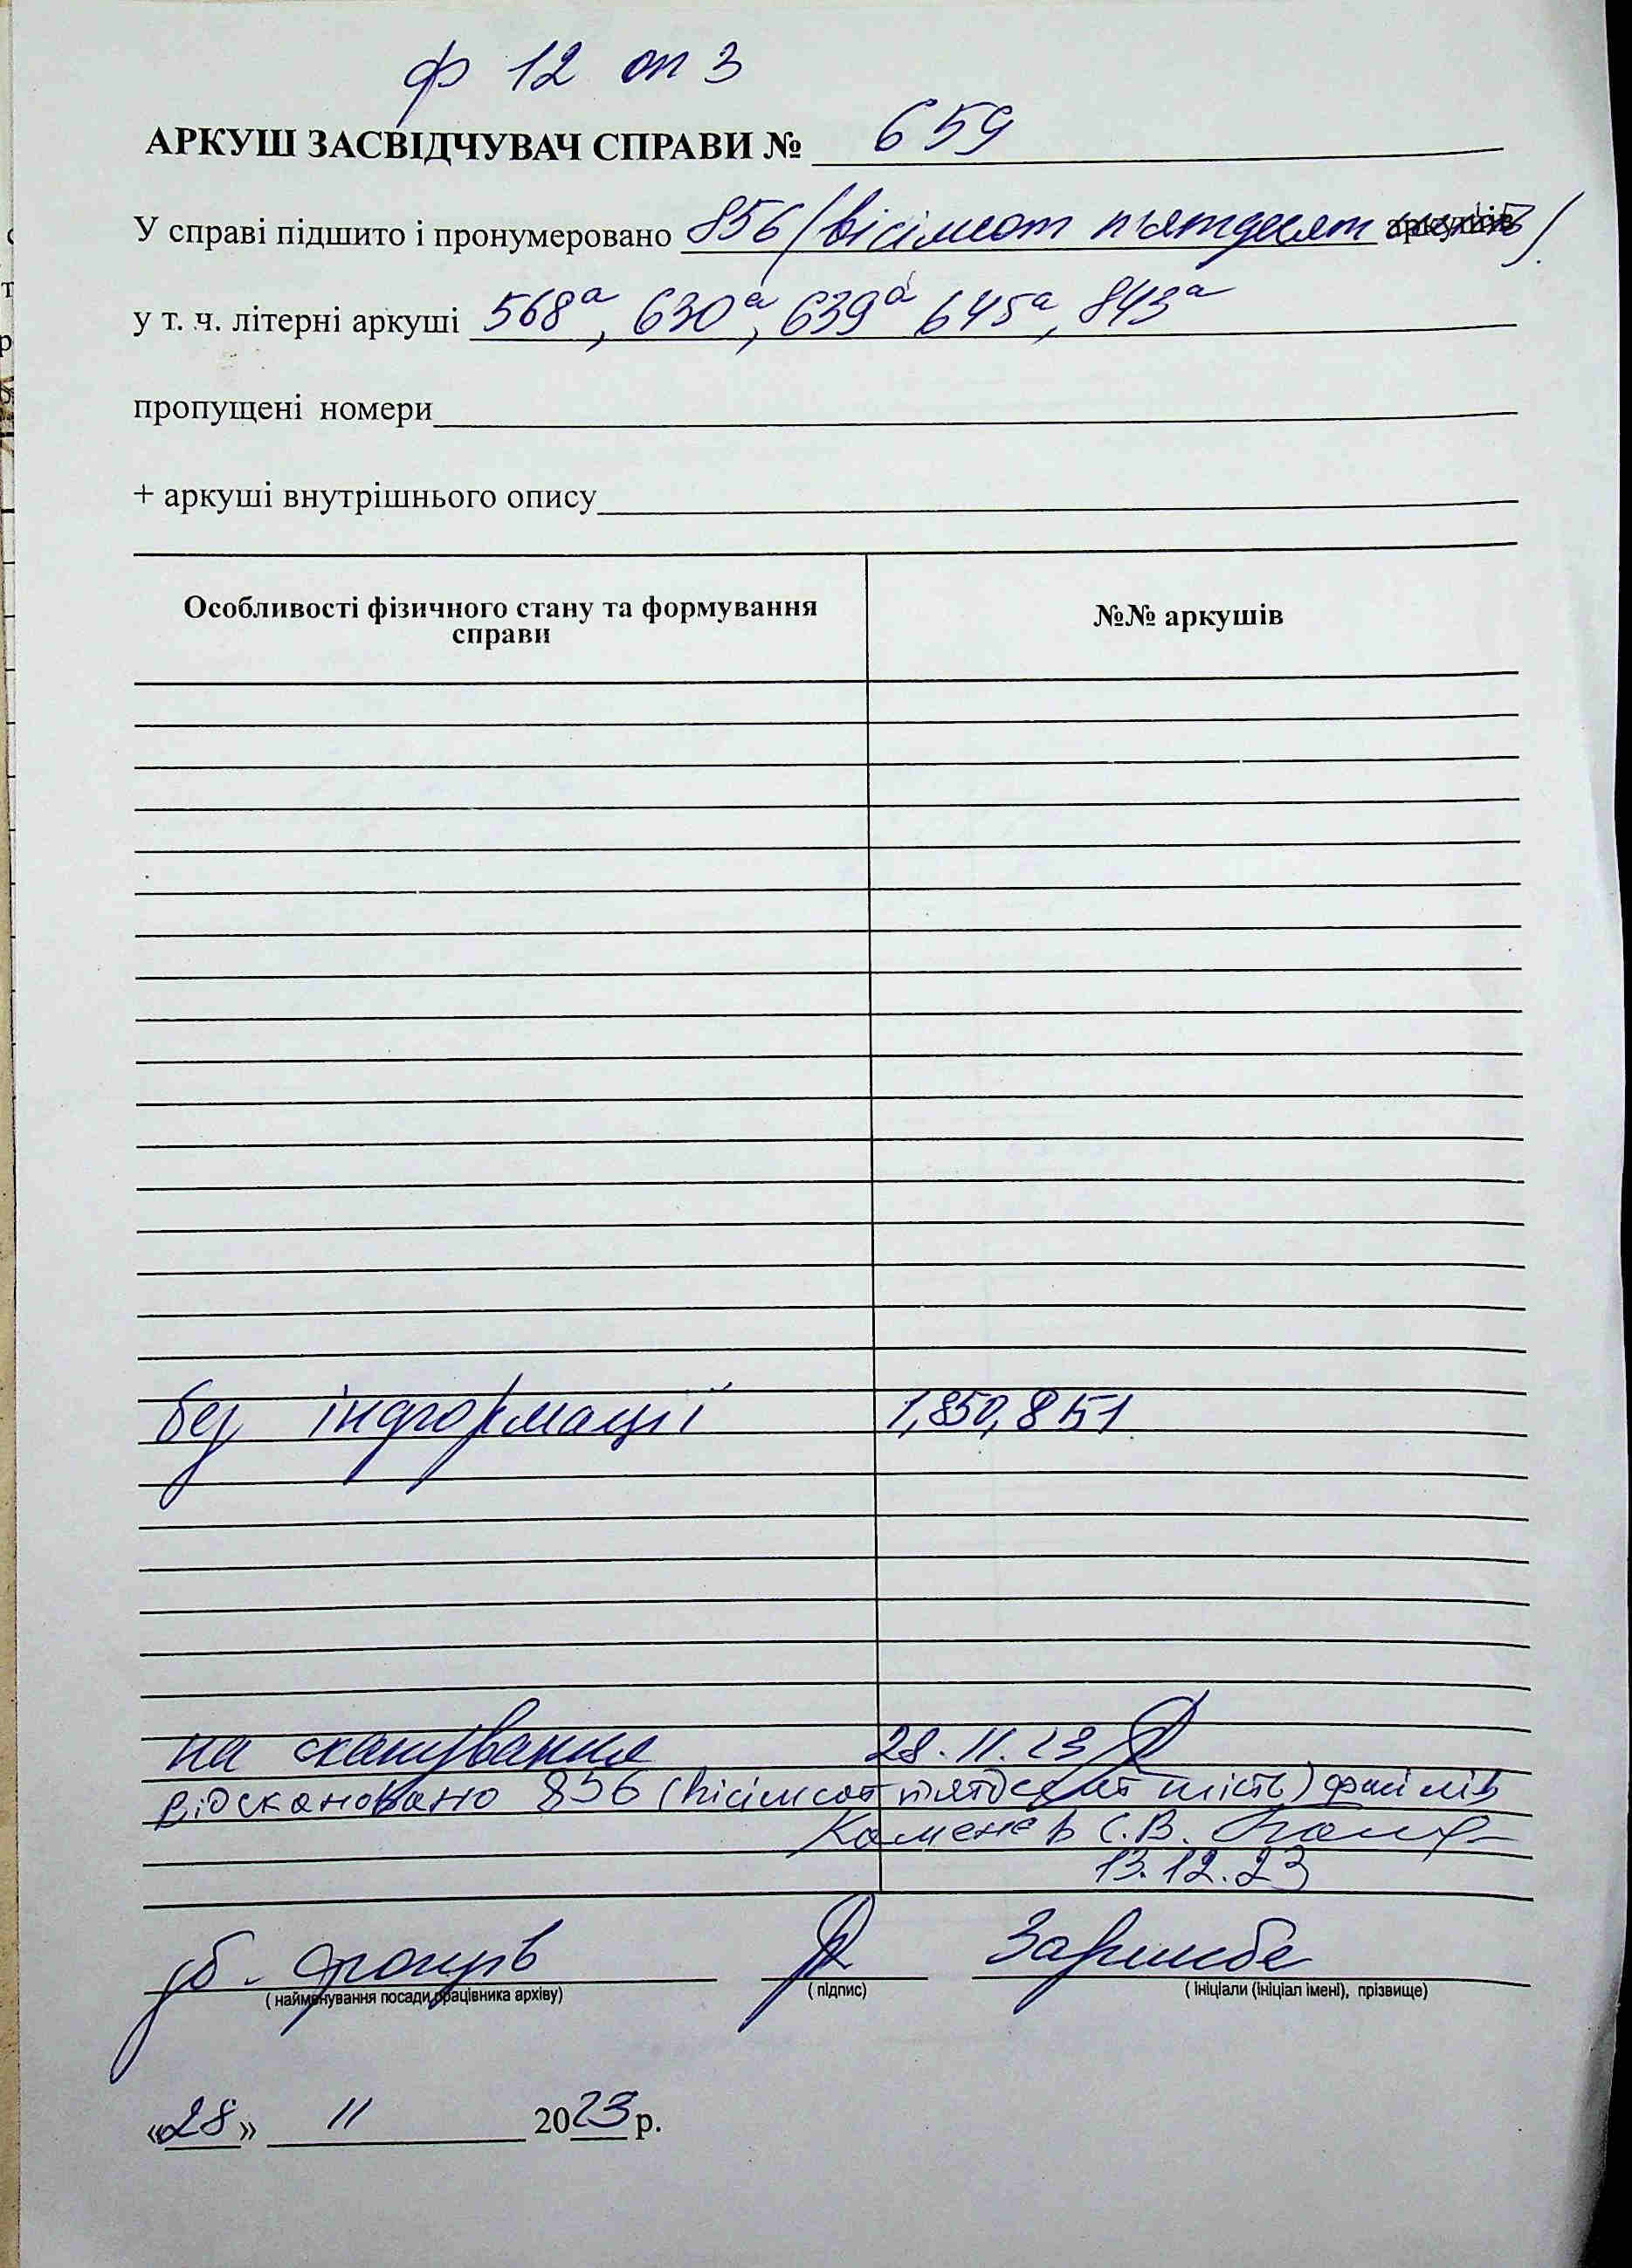 ф 12 оп 3
АРКУШ ЗАСВІДЧУВАЧ СПРАВИ № 659
У справі підшито і пронумеровано 856 (вісімсот п'ятдесят шість) аркушів
у т. ч. літерні аркуші 568а, 630а, 639а 645а, 843а
пропущені номери
+ аркуші внутрішнього опису
Особливості фізичного стану та формування справи №№ аркушів
без інформації 1,850,851
на сканування 28.11.23
Відскановано 856 (вісімсот пятдесят шість) файлів
Каменєв С.В.
13.12.23
зб. фондів Заремба
( найменування посади працівника архіву) ( підпис) ( ініціали (ініціал імені), прізвище)
«28» 11 2023 р.